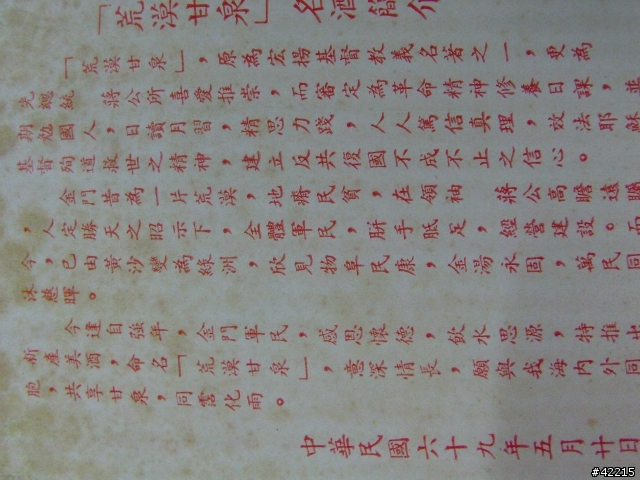 「荒漠甘泉」名酒簡介
「荒漠甘泉」，原為宏揚基督教義名著之一，更為
先總統　蔣公所喜愛推崇，而審定為革命精神修養日課，並
期勉國人，日讀月習，精思力踐，人人篤信真理，效法耶穌
基督殉道救世之精神，建立反共復國不成不止之信心。
金門昔為一片荒漠，地瘠民貧，在領袖　蔣公高瞻遠矚
，人定勝天之昭示下，全體軍民，胼手胝足，經營建設。而
今，已由黃沙變為綠洲，欣見物阜民康，金湯永固，萬民同
沐慈暉。
今逢自強年，金門軍民，感恩懷德，飲水思源，特推出
新產美酒，命名「荒漠甘泉」，意深情長，願與我海內外同
胞，共享甘泉，同霑化雨。
中華民國六十九年五月廿日
#42215